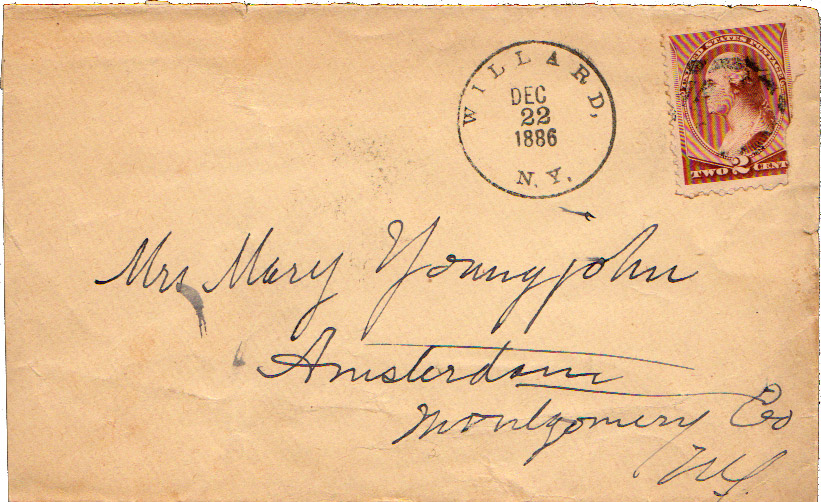 WILLARD,
DEC
22
1886
N.Y.
UNITED STATES POSTAGE
TWO 2 CENT
Mrs Mary Youngjohn
Amsterdam
Montgomery Co
NY